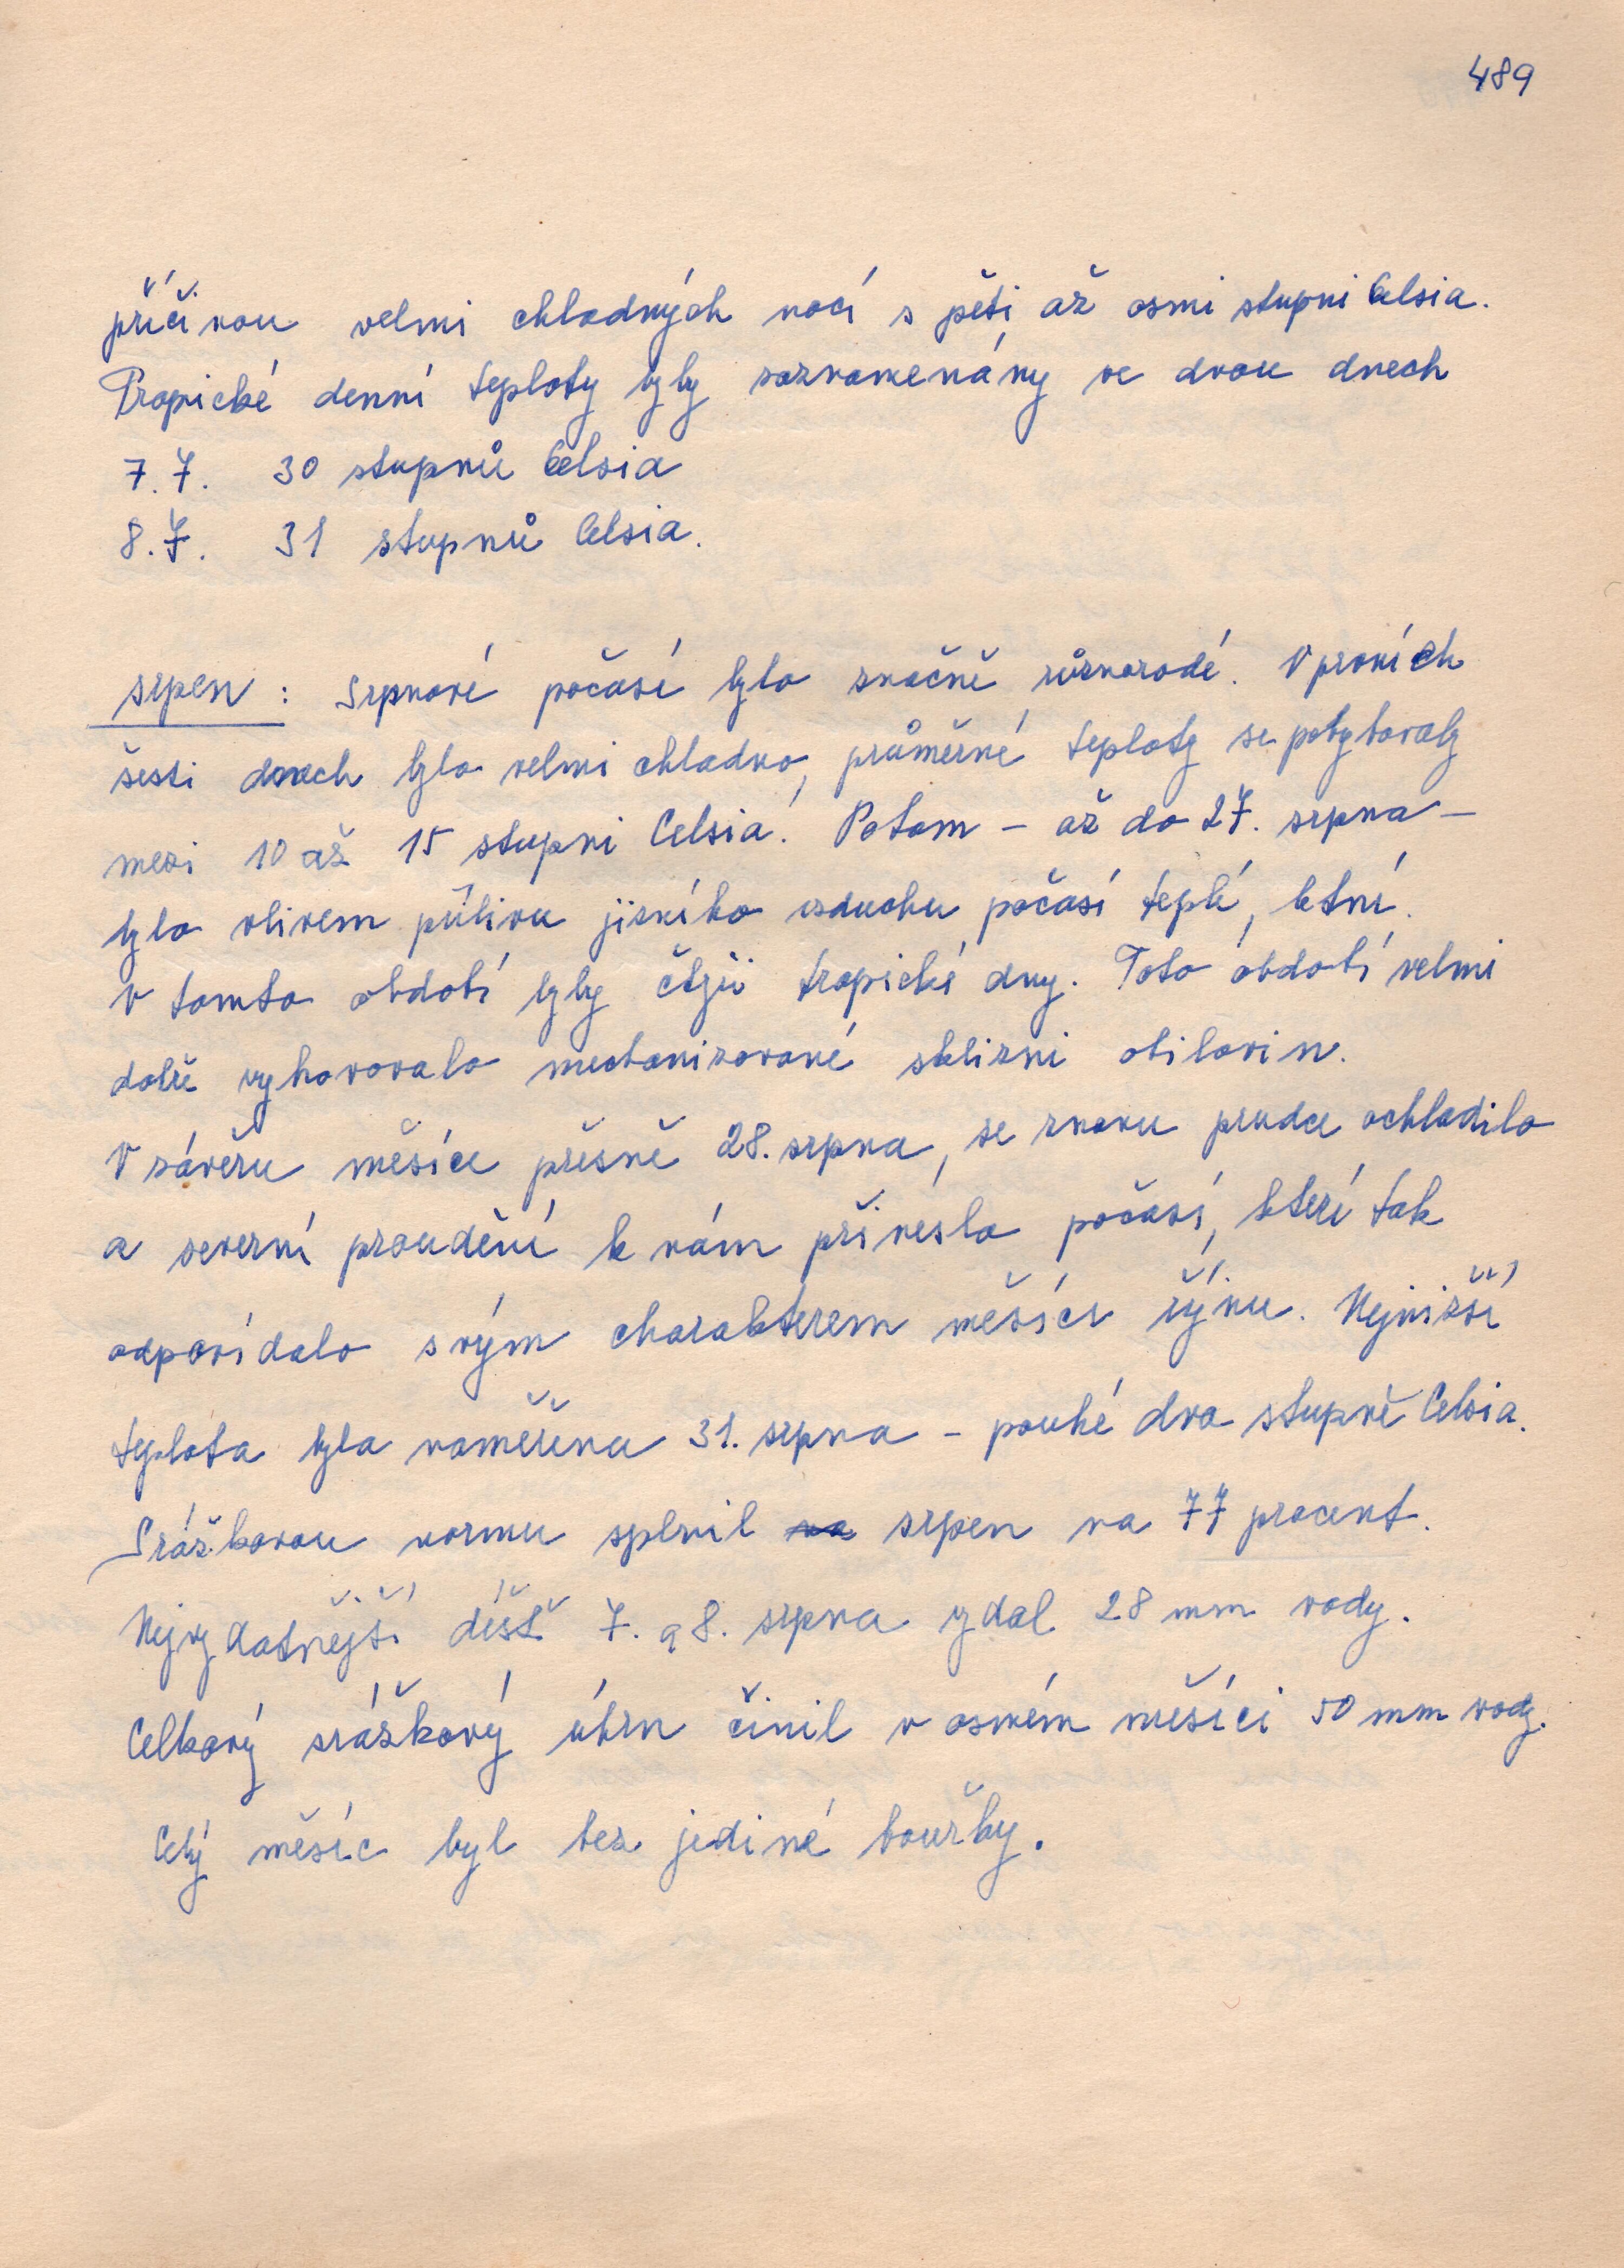 489
příčinou velmi chladných nocí s pěti až osmi stupni Celsia.
Tropické denní teploty byly zaznamenány ve dvou dnech
7.7. 30 stupňů Celsia
8.7. 31 stupňů Celsia.
srpen : Srpnové počasí bylo značně různorodé. V prvních
šesti dnech bylo velmi chladno, průměrné teploty se pohybovaly
mezi 10 až 15 stupni Celsia. Potom - až do 27. srpna -
bylo vlivem přílivu jižního vzduchu počasí teplé, letní.
V tomto období byly čtyři tropické dny. Toto období velmi
dobře vyhovovalo mechanizované sklizni obilovin.
V závěru měsíce přesně 28. srpna, se znovu prudce ochladilo
a severní proudění k nám přineslo počasí, které tak
odpovídalo svým charakterem měsíci říjnu. Nejnižší
teplota byla naměřena 31. srpna - pouhé dva stupně Celsia.
Srážkovou normu splnil na srpen na 77 procent.
Nejvydatnější déšť 7. a 8. srpna vydal 28 mm vody.
Celkový srážkový úhrn činil v osmém měsíci 50 mm vody.
Celý měsíc byl bez jediné bouřky.